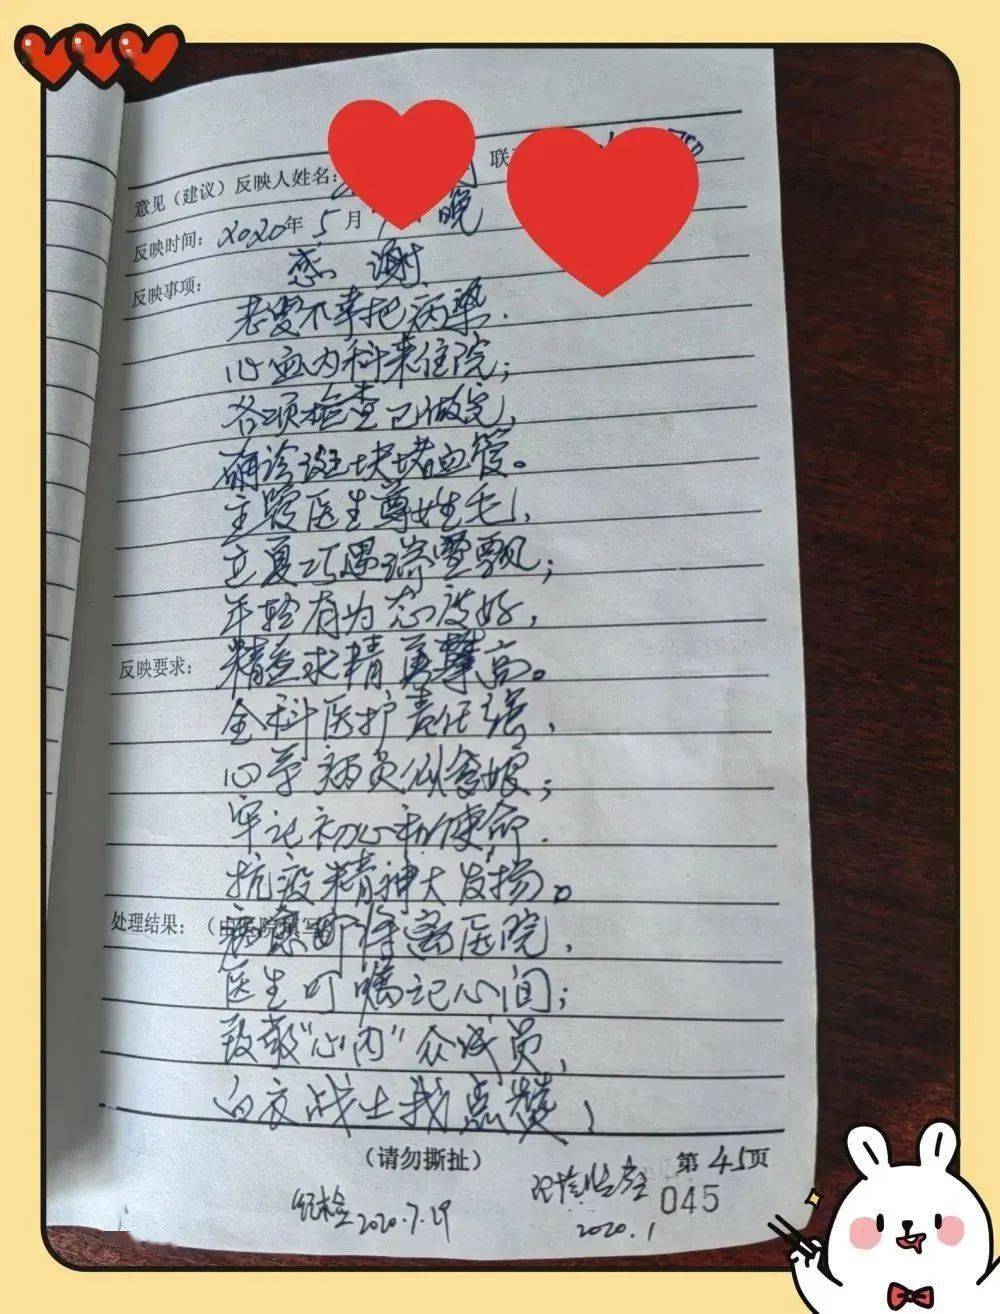 意见（建议）反映人姓名：
联
反映时间：2020年5月 晚
反映事项：
感谢
老叟不幸把病染，
心血内科来住院；
各项检查已做完，
确诊斑块堵血管。
主管医生尊姓毛，
立夏巧遇瑞雪飘；
年轻有为态度好，
反映要求：
精益求精勇攀高。
全科医护责任强，
心系病员似爹娘；
牢记初心和使命，
抗疫精神大发扬。
处理结果：（由医院填写）
病愈即将离医院，
医生叮嘱记心间；
致敬“心内”众成员，
白衣战士我点赞！
（请勿撕扯）
第45页
045
纪检 2020.7.29
2020.1